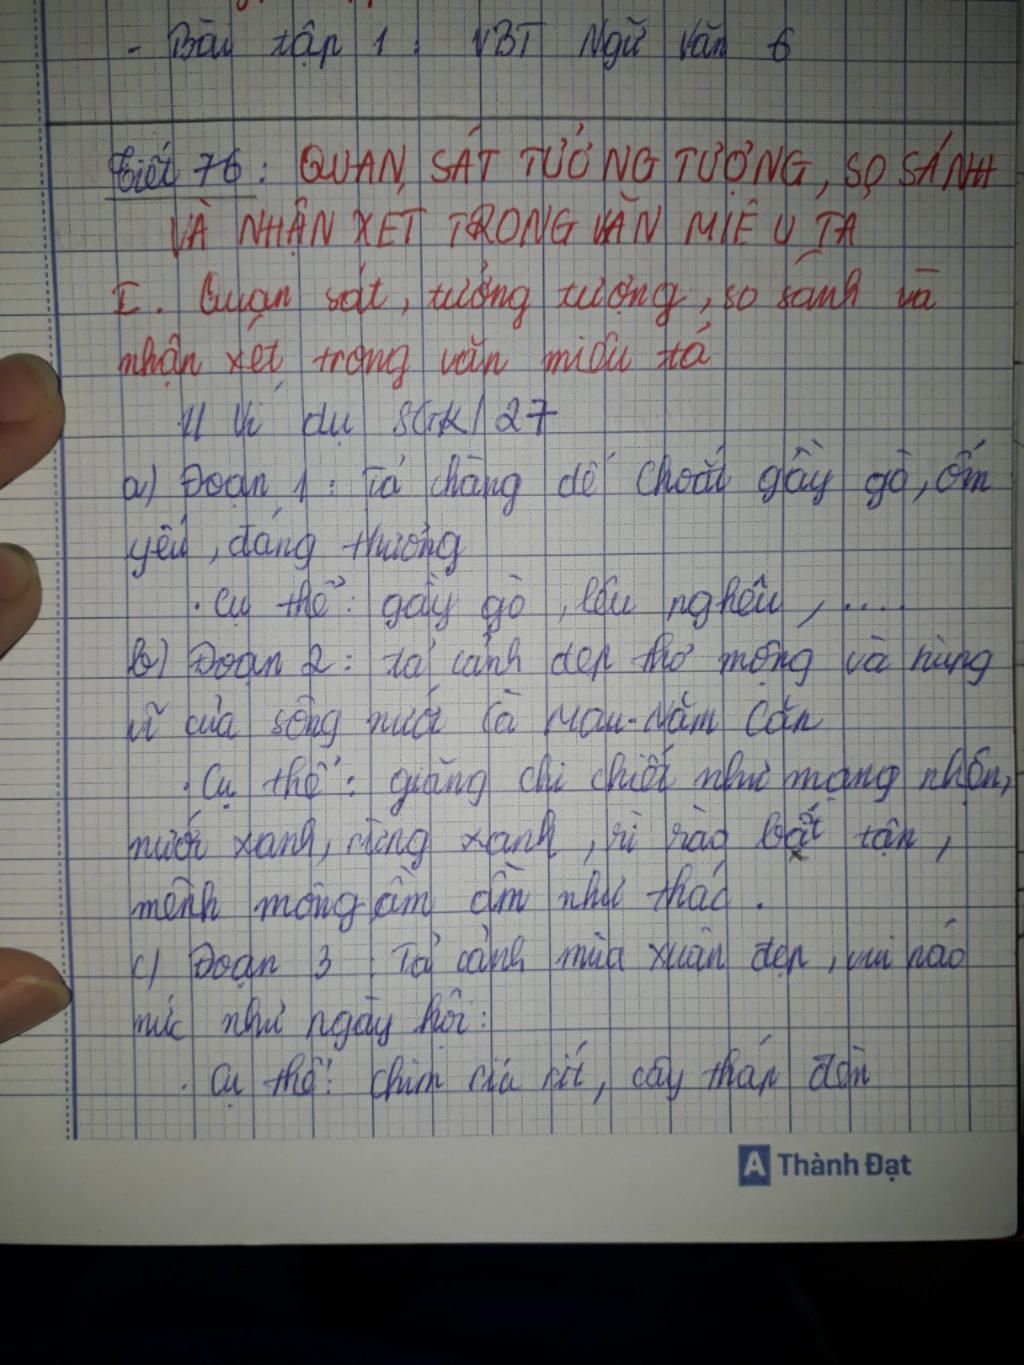 - Bài tập 1 : VBT Ngữ Văn 6
Tiết 76 : QUAN SÁT TƯỞNG TƯỢNG, SO SÁNH
VÀ NHẬN XÉT TRONG VĂN MIÊU TẢ
I. Quan sát, tưởng tượng, so sánh và
nhận xét trong văn miêu tả
1/ Ví dụ SGK/27
a) Đoạn 1 : Tả chàng dế Choắt gầy gò, ốm
yếu, đáng thương
. Cụ thể : gầy gò, lêu nghêu, ....
b) Đoạn 2 : tả cảnh đẹp thơ mộng và hùng
vĩ của sông nước Cà Mau-Năm Căn
. Cụ thể : giăng chi chiết như mạng nhện,
nước xanh, rừng xanh, rì rào bất tận,
mênh mông ầm ầm như thác.
c) Đoạn 3 : Tả cảnh mùa xuân đẹp, vui náo
nức như ngày hội :
. Cụ thể : chim ríu rít, cây tháp đèn
A Thành Đạt